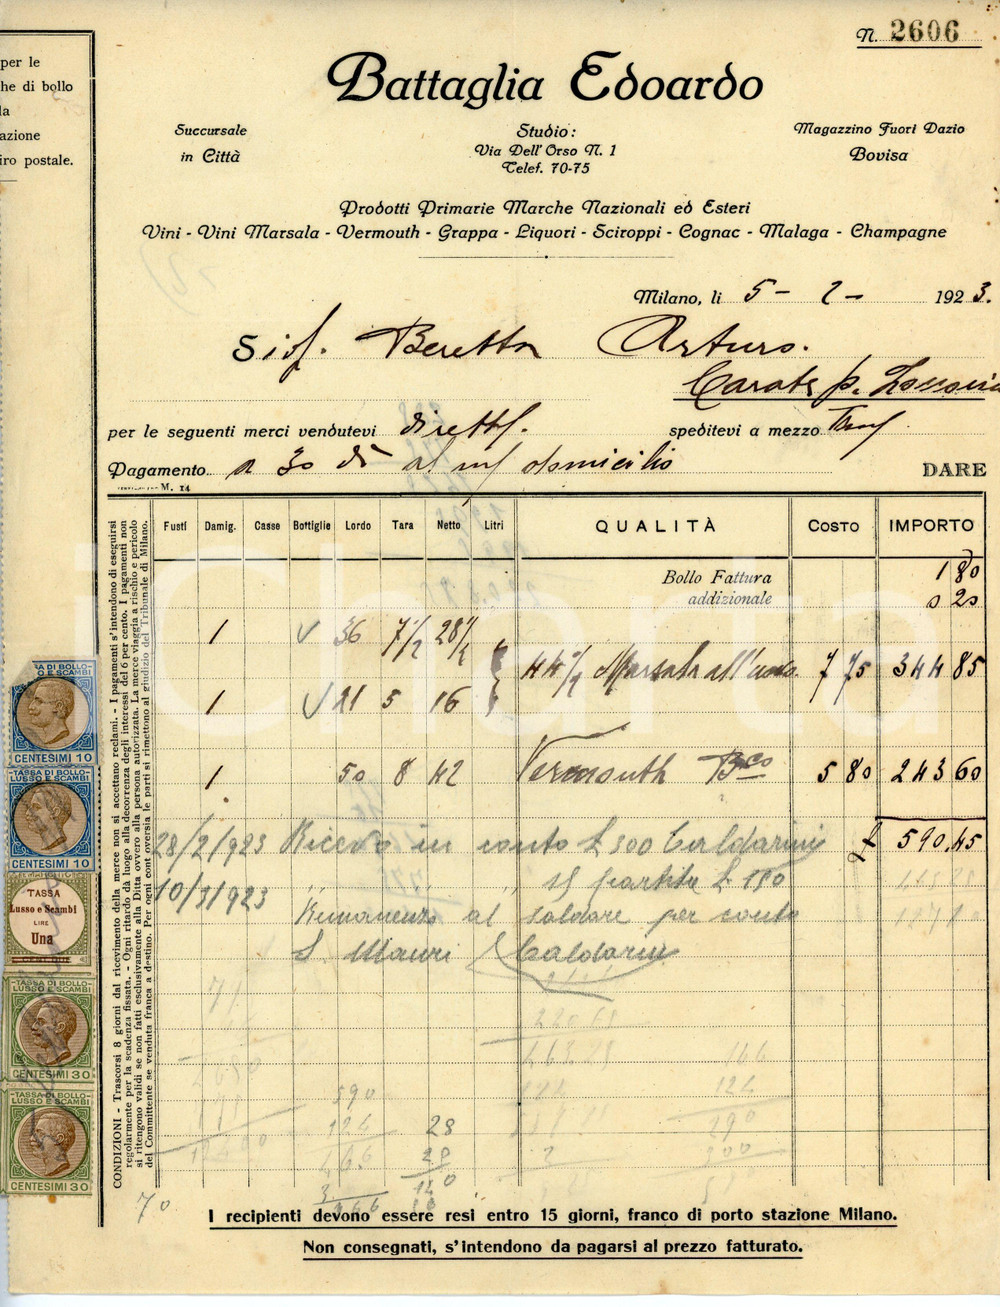 per le
he di bollo
la
azione
iro postale.
N. 2606
Battaglia Edoardo
Succursale
in Città
Studio:
Via Dell'Orso N. 1
Telef. 70-75
Magazzino Fuori Dazio
Bovisa
Prodotti Primarie Marche Nazionali ed Esteri
Vini - Vini Marsala - Vermouth - Grappa - Liquori - Sciroppi - Cognac - Malaga - Champagne
Milano, li 5 - 2 - 1923.
Sig. Beretta Arturo.
Carate p.
per le seguenti merci vendutevi dirett. speditevi a mezzo
Pagamento a 30 dì al domicilio
DARE
M. 14
Fusti Damig. Casse Bottiglie Lordo Tara Netto Litri QUALITÀ COSTO IMPORTO
Bollo Fattura 1 80
addizionale 0 20
1 V 36 7 1/2 28 1/2
44 1/2 Marsala all'uovo 7 75 344 85
1 V 21 5 16
1 50 8 42 Vermouth Bco 5 80 243 60
£ 590.45
28/2/1923 Ricevo in conto £ 300 Caldarini
10/3/1923 " " " £ 150
Rimanenza al saldare per conto
S. Mauri Caldarini
590
124
466
28
20
124
290
300
70
CONDIZIONI - Trascorsi 8 giorni dal ricevimento della merce non si accettano reclami. - I pagamenti s'intendono di eseguirsi
regolarmente per la scadenza fissata. - Ogni ritardo dà luogo alla decorrenza degli interessi del 6 per cento. I pagamenti non
si ritengono validi se non fatti esclusivamente alla Ditta ovvero alla persona autorizzata. La merce viaggia a rischio e pericolo
del Committente se venduta franca a destino. Per ogni controversia le parti si rimettono al giudizio del Tribunale di Milano.
SA DI BOLLO-
O E SCAMBI
CENTESIMI 10
TASSA DI BOLLO-
LUSSO E SCAMBI
CENTESIMI 10
TASSA
Lusso e Scambi
LIRE
Una
TASSA DI BOLLO-
LUSSO E SCAMBI
CENTESIMI 30
TASSA DI BOLLO-
LUSSO E SCAMBI
CENTESIMI 30
I recipienti devono essere resi entro 15 giorni, franco di porto stazione Milano.
Non consegnati, s'intendono da pagarsi al prezzo fatturato.